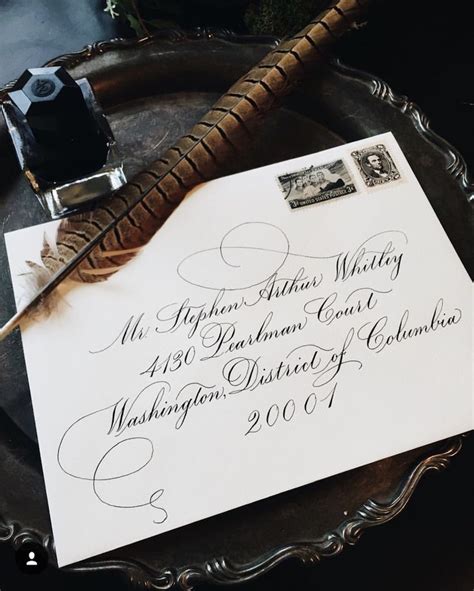 Mr. Stephen Arthur Whitley
4130 Pearlman Court
Washington, District of Columbia
20001
UNITED STATES